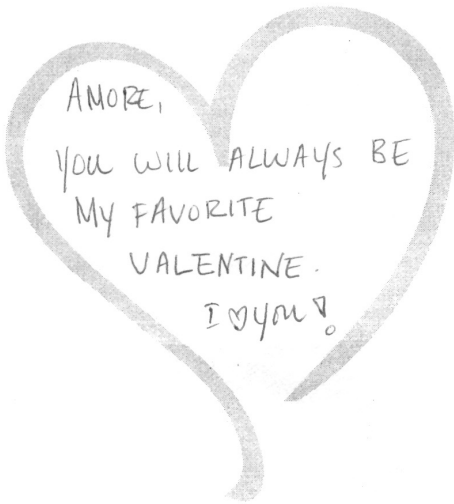 AMORE,
YOU WILL ALWAYS BE
MY FAVORITE
VALENTINE.
I ♡ YOU!